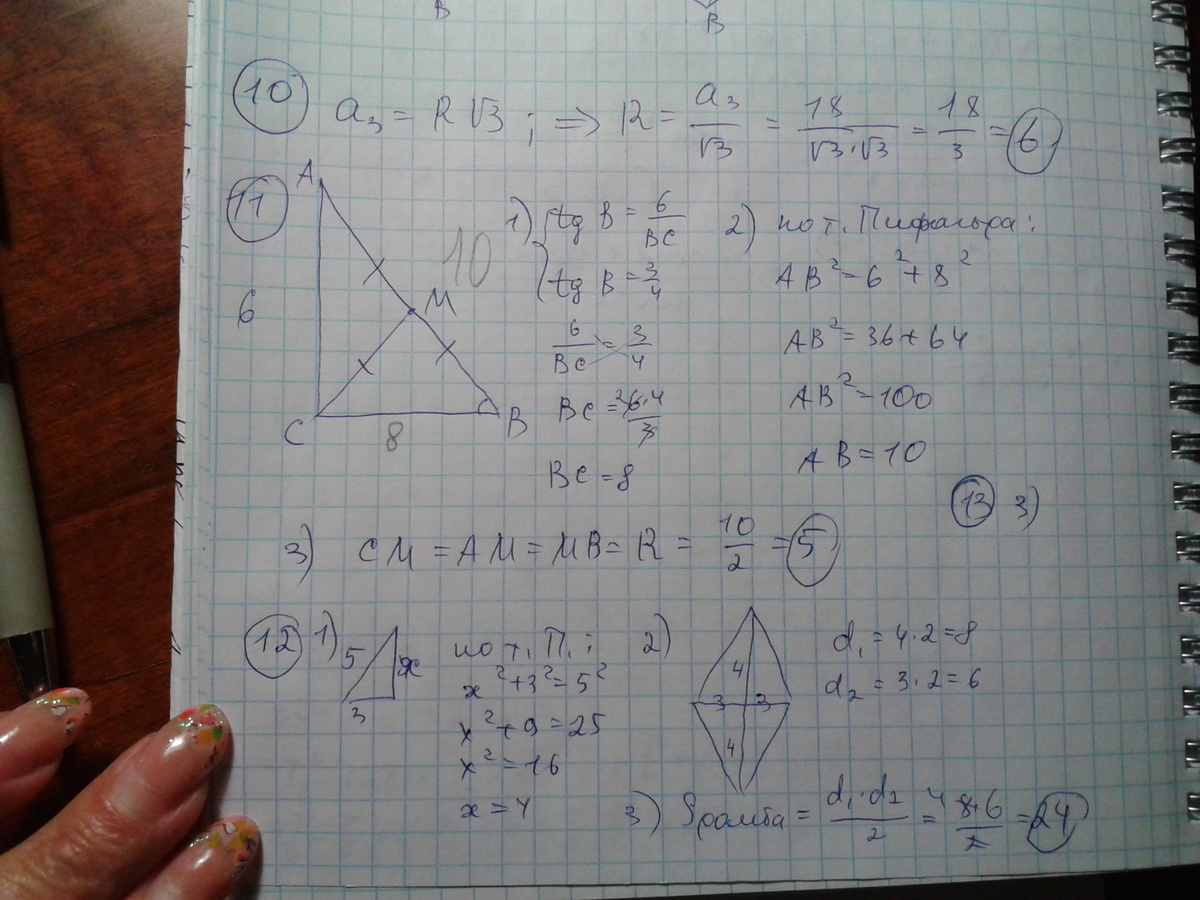 В
В
10 a₃ = R√3 ; ⇒ R = a₃/√3 = 18/(√3·√3) = 18/3 = 6
11
A
6
10
M
C
8
B
1) { tg B = 6/BC
tg B = 3/4
6/BC = 3/4
BC = ²6·4/3
BC = 8
2) по т. Пифагора:
AB² = 6² + 8²
AB² = 36 + 64
AB² = 100
AB = 10
13 3)
3) CM = AM = MB = R = 10/2 = 5
12 1)
5
x
3
по т. П. :
x² + 3² = 5²
x² + 9 = 25
x² = 16
x = 4
2)
4
3 3
4
d₁ = 4·2 = 8
d₂ = 3·2 = 6
3) Sромба = d₁·d₂/2 = ⁴8·6/2 = 24